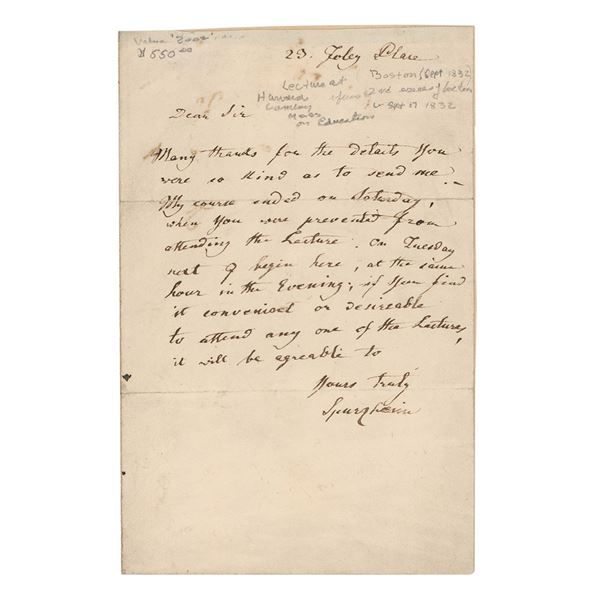 Value
$550.00
23. Foley Place
Lecture at
Harvard
Mass
on Education
Boston (Sept 1832)
2nd series of
Sept 17 1832
Dear Sir
Many thanks for the details You
were so kind as to send me. -
My course ended on Saturday,
when You were prevented from
attending the Lecture. On Tuesday
next I begin here, at the same
hour in the Evening; if You find
it convenient or desireable
to attend any one of the Lectures,
it will be agreable to
Yours truly
Spurzheim